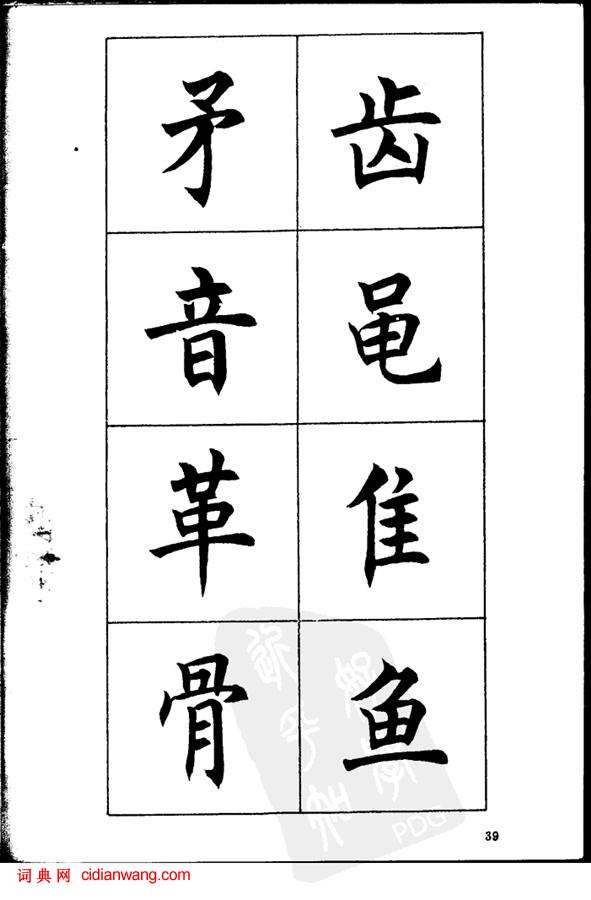 齿黾隹鱼
矛音革骨
PDG
39
词典网 cidianwang.com